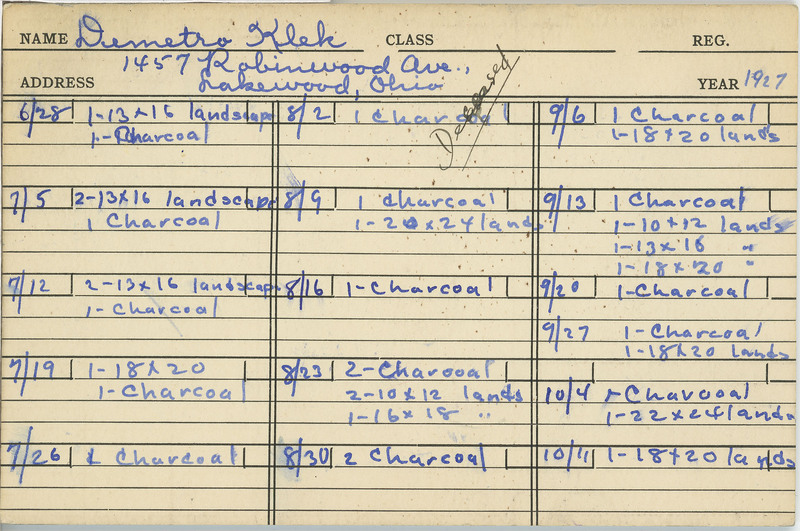 NAME Dumetro Klek CLASS REG.
1457 Robinwood Ave.,
ADDRESS Lakewood, Ohio YEAR 1927
Deceased
6/28 1-13x16 landscape
1-Charcoal
7/5 2-13x16 landscape
1 Charcoal
7/12 2-13x16 landscape
1-Charcoal
7/19 1-18x20
1-Charcoal
7/26 Charcoal
8/2 1 Charcoal
8/9 1 charcoal
1-20x24 lands
8/16 1-Charcoal
8/23 2-Charcoal
2-10x12 lands
1-16x18 "
8/30 2 Charcoal
9/6 1 Charcoal
1-18x20 lands
9/13 1 Charcoal
1-10x12 lands
1-13x16 "
1-18x20 "
9/20 1-Charcoal
9/27 1-Charcoal
1-18x20 lands
10/4 Charcoal
1-22x24 lands
10/11 1-18x20 lands